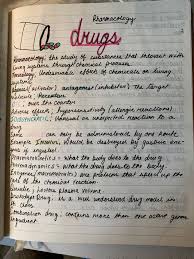 Pharmacology
drugs
Pharmacology, the study of substances that interact with
living systems through chemical processes.
Toxicology, Undesirable effect of chemicals on living
systems
/ activator / antagonist (inhibitor) - The Target
Molecule, Receptor
, over the counter
Adverse effects, hypersensitivity (allergic reactions).
IDIOSYNCRATIC; Unusual or unexpected reaction to a
drug
can only be administered by one route
Example Insulin, Would be destroyed by gastric enz-
yme if ingested.
Pharmacokinetics = what the body does to the drug
Pharmacodynamics = what the drug does to the body.
Enzymes are proteins that speed up the
rate of the chemical reaction.
, has low plasma volume.
Prototype Drug, is a well understood drug model in
a class
Combination drug, contains more than one active green
ingredient.